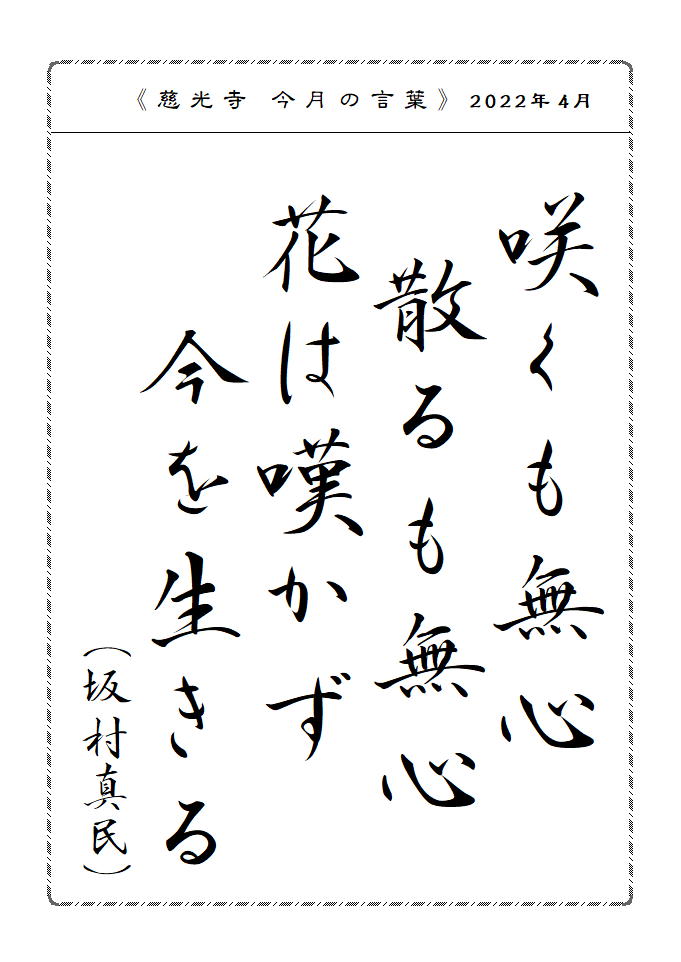 《慈光寺 今月の言葉》2022年4月
咲くも無心
散るも無心
花は嘆かず
今を生きる
(坂村真民)